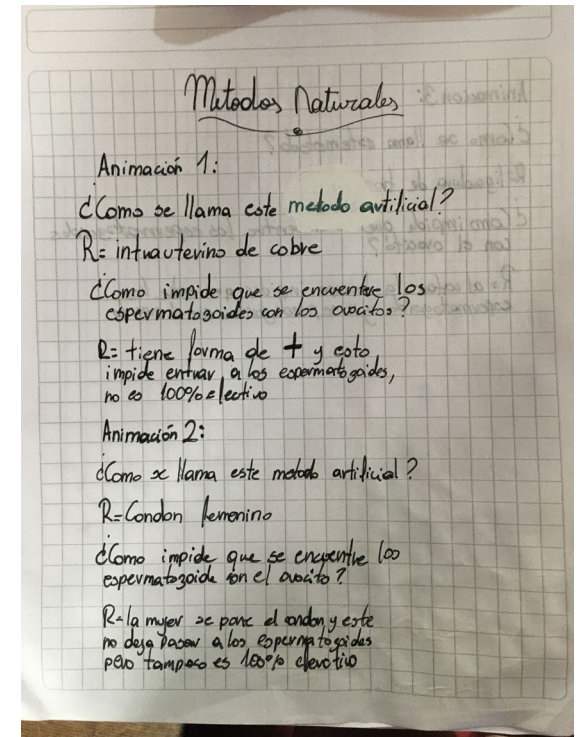 Metodos Naturales
Animación 1:
¿Como se llama este metodo artificial?
R= intrauterino de cobre
¿Como impide que se encuentre los
espermatozoides con los ovocitos?
R= tiene forma de + y esto
impide entrar a los espermatozoides,
no es 100% efectivo
Animación 2:
¿Como se llama este metodo artificial?
R=Condon femenino
¿Como impide que se encuentre los
espermatozoide con el ovocito?
R=la mujer se pone el condon y este
no deja pasar a los espermatozoides
pero tampoco es 100%